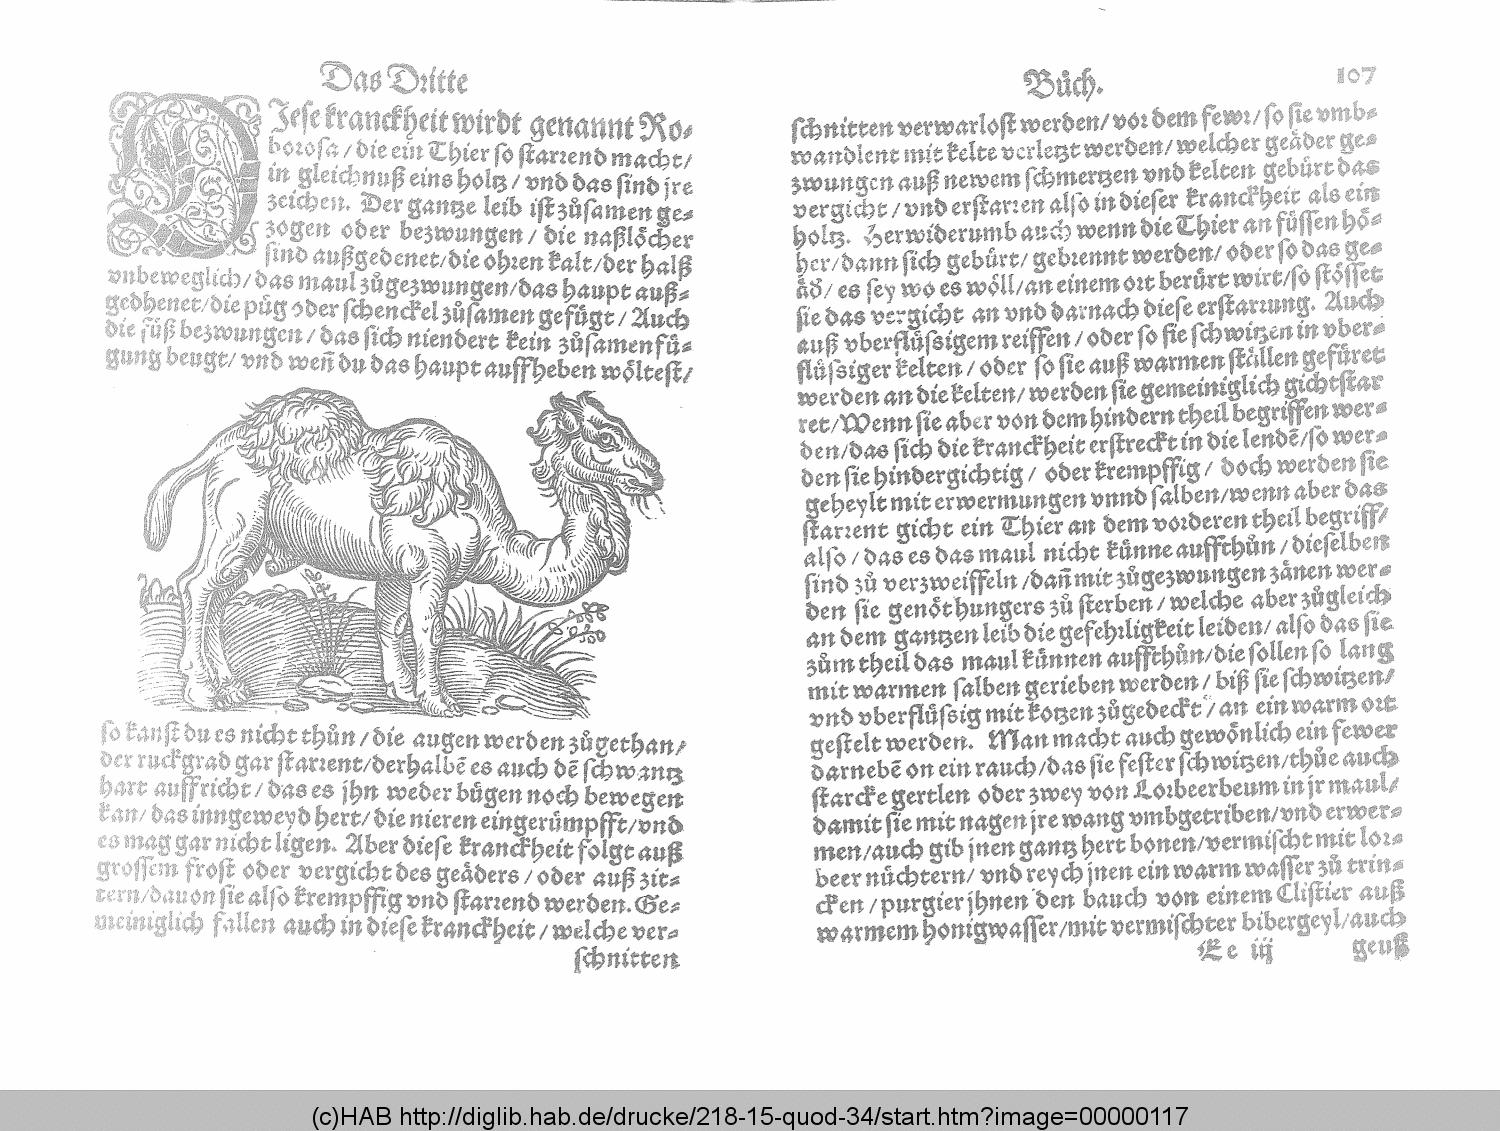 Das Dritte
DIese kranckheit wirdt genannt Ro⸗
borosa / die ein Thier so starrend macht/
in gleichnuß eins holtz / vnd das sind jre
zeichen. Der gantze leib ist zůsamen ge⸗
zogen oder bezwungen / die naßlöcher
sind außgedenet/die ohren kalt/der halß
vnbeweglich/das maul zůgezwungen/das haupt auß⸗
gedhenet/die půg oder schenckel zůsamen gefügt / Auch
die füß bezwungen / das sich niendert kein zůsamenfü⸗
gung beugt/ vnd weñ du das haupt auffheben wöltest/
so kanst du es nicht thůn / die augen werden zůgethan/
der ruckgrad gar starrent/derhalbē es auch dē schwantz
hart auffricht / das es jhn weder bügen noch bewegen
kan/ das inngeweyd hert/die nieren eingerümpfft/vnd
es mag gar nicht ligen. Aber diese kranckheit folgt auß
grossem frost oder vergicht des geäders / oder auß zit⸗
tern/dauon sie also krempffig vnd starrend werden. Ge⸗
meiniglich fallen auch in diese kranckheit / welche ver⸗
schnitten
Bůch. 107
schnitten verwarlost werden/ vor dem fewr/ so sie vmb⸗
wandlent mit kelte verletzt werden/ welcher geäder ge⸗
zwungen auß newem schmertzen vnd kelten gebürt das
vergicht / vnd erstarren also in dieser kranckheit als ein
holtz. Herwiderumb auch wenn die Thier an füssen hö⸗
her/dann sich gebürt/ gebrennt werden/ oder so das ge⸗
äd/ es sey wo es wöll/an einem ort berürt wirt/so stösset
sie das vergicht an vnd darnach diese erstarrung. Auch
auß vberflüssigem reiffen / oder so sie schwitzen in vber⸗
flüssiger kelten / oder so sie auß warmen ställen gefüret
werden an die kelten/ werden sie gemeiniglich gichtstar
ret/Wenn sie aber von dem hindern theil begriffen wer⸗
den/das sich die kranckheit erstreckt in die lendē/so wer⸗
den sie hindergichtig / oder krempffig / doch werden sie
geheylt mit erwermungen vnnd salben/wenn aber das
starrent gicht ein Thier an dem vorderen theil begriff/
also / das es das maul nicht künne auffthůn / dieselben
sind zů verzweiffeln /dañ mit zůgezwungen zänen wer⸗
den sie genöthungers zů sterben / welche aber zůgleich
an dem gantzen leib die gefehrligkeit leiden/ also das sie
zům theil das maul künnen auffthůn/die sollen so lang
mit warmen salben gerieben werden / biß sie schwitzen/
vnd vberflüssig mit kotzen zůgedeckt / an ein warm ort
gestelt werden. Man macht auch gewönlich ein fewer
darnebē on ein rauch/das sie fester schwitzen/thůe auch
starcke gertlen oder zwey von Lorbeerbeum in jr maul/
damit sie mit nagen jre wang vmbgetriben/vnd erwer⸗
men/auch gib jnen gantz hert bonen/vermischt mit lor⸗
beer nüchtern/ vnd reych jnen ein warm wasser zů trin⸗
cken / purgier jhnen den bauch von einem Clistier auß
warmem honigwasser/mit vermischter bibergeyl/auch
Ee iij geuß
(c)HAB http://diglib.hab.de/drucke/218-15-quod-34/start.htm?image=00000117